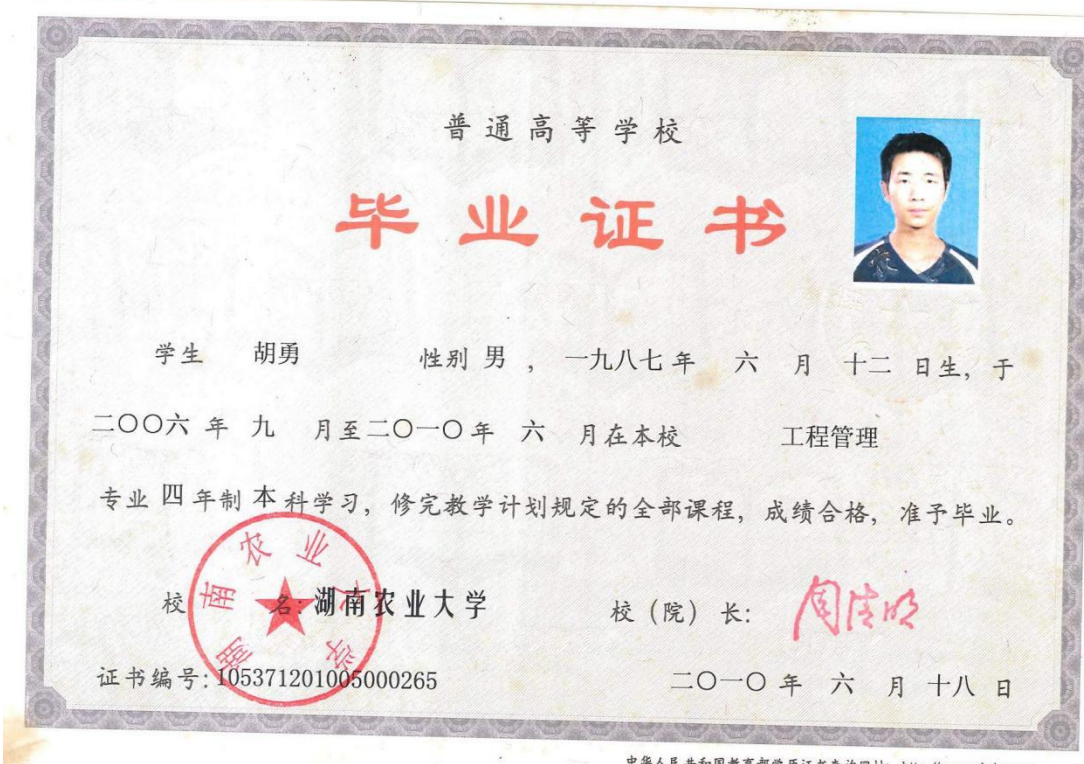 普通高等学校
毕业证书
学生 胡勇 性别 男 , 一九八七 年 六 月 十二 日生, 于
二〇〇六 年 九 月至二〇一〇年 六 月在本校 工程管理
专业 四 年制 本 科学习, 修完教学计划规定的全部课程, 成绩合格, 准予毕业。
湖南农业大学
校 名: 湖南农业大学 校(院)长: 周清明
证书编号: 105371201005000265 二〇一〇 年 六 月 十八 日
中华人民共和国教育部学历证书查询网址: